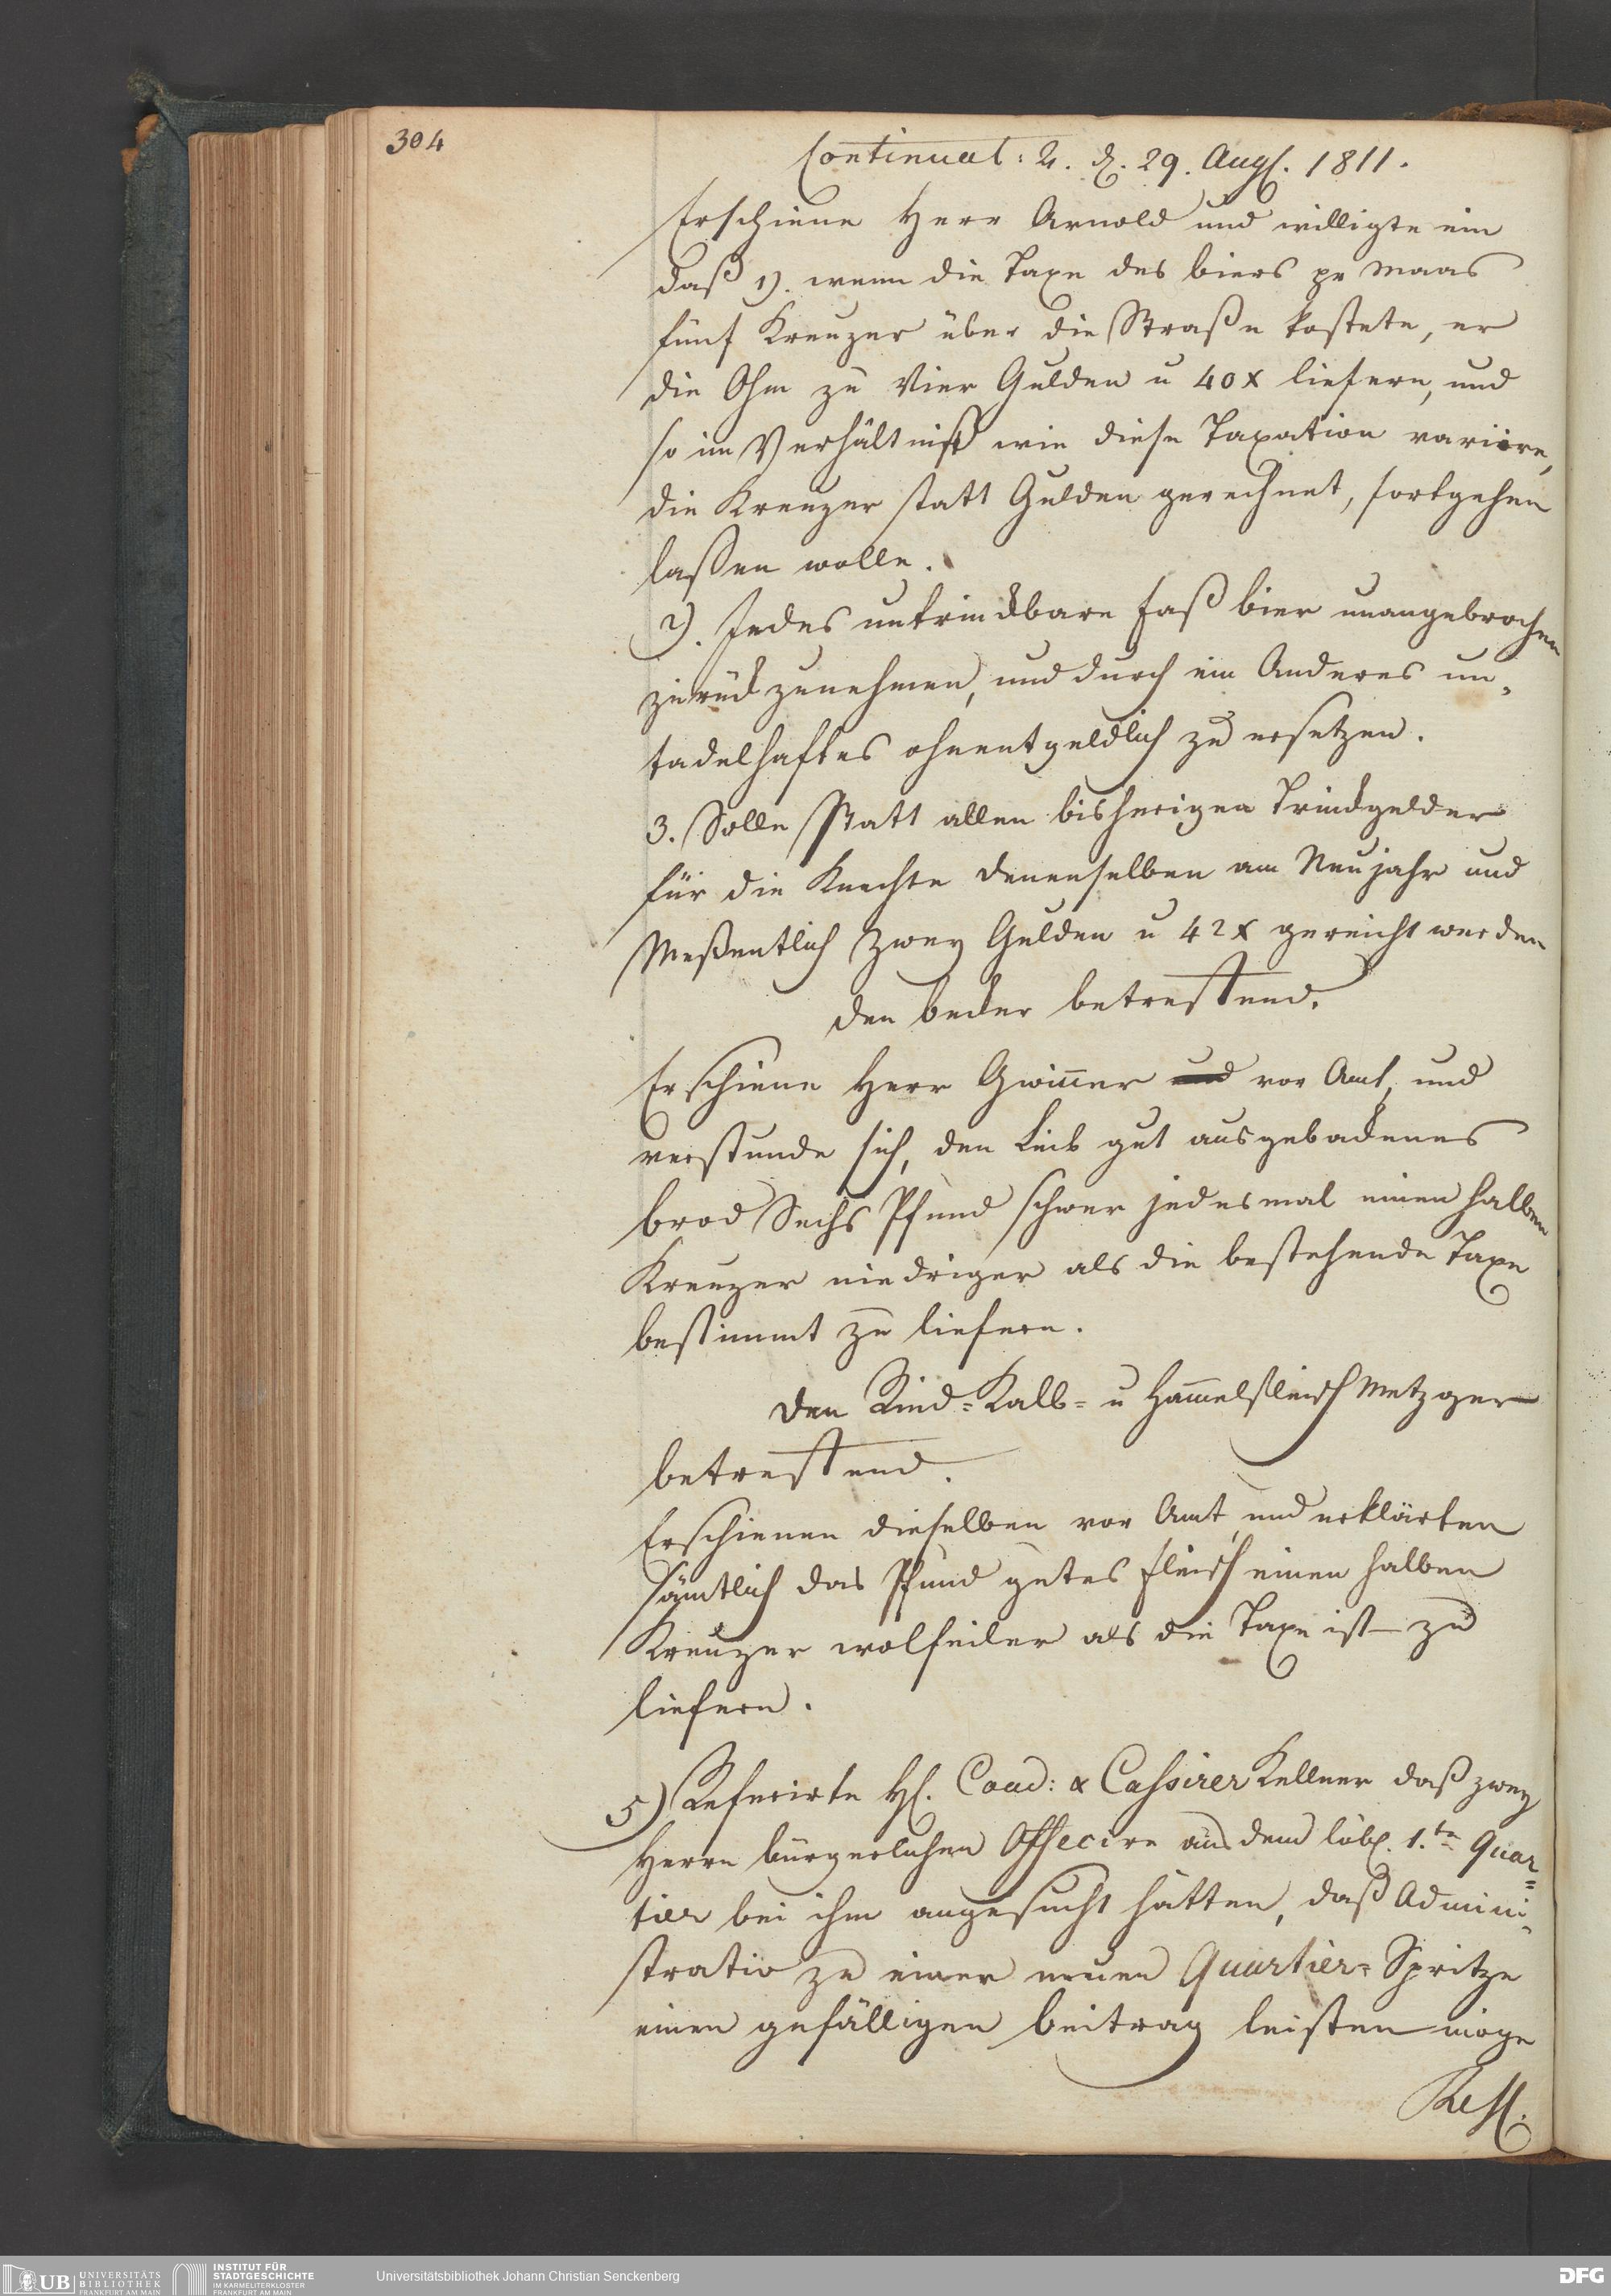 304
Continuat: 4. d. 29. Augs. 1811.
Erschiene Herr Arnold und willigte ein
daß 1). wenn die Taxe des biers pr Maas
fünf Kreuzer über die Straße kostete, er
die Ohm zu Vier Gulden u 40 x liefern, und
so im Verhältniß wie diese Taxation variire,
die Kreuzer statt Gulden gerechnet, fortgehen
lassen wolle.
2). Jedes untrinckbare Faß bier unangebrochen
zurück zunehmen, und durch ein Anderes un-
tadelhaftes ohnentgeldlich zu ersetzen.
3. Solle Statt allen bisherigen Trinckgelder
für die Knechte denenselben am Neujahr und
Meßentlich Zwey Gulden u 42 x gereicht werden
den becker betreffend.
Erschiene Herr Gwinner und vor Amt, und
verstunde sich, den Leib gut ausgebackenes
brod Sechs Pfund schwer jedesmal einen halben
Kreuzer niedriger als die bestehende Taxe
bestimmt zu liefern.
den Rind- Kalb- u Hammelfleisch Metzger
betreffend.
Erschienen dieselben vor Amt, und erklärten
sämtlich das Pfund gutes Fleisch einen halben
Kreuzer wolfeiler als die Taxe ist zu
liefern.
5) Referirte H. Cand: & Cassirer Kellner daß zwey
Herrn bürgerlichen Offecire aus dem löbl. 1.te Quar-
tier bei ihm angesucht hätten, daß Admini-
stratio zu einer neuen Quartier-Spritze
einen gefälligen beitrag leisten möge
UB UNIVERSITÄTS
BIBLIOTHEK
FRANKFURT AM MAIN
INSTITUT FÜR
STADTGESCHICHTE
IM KARMELITERKLOSTER
FRANKFURT AM MAIN
Universitätsbibliothek Johann Christian Senckenberg
DFG